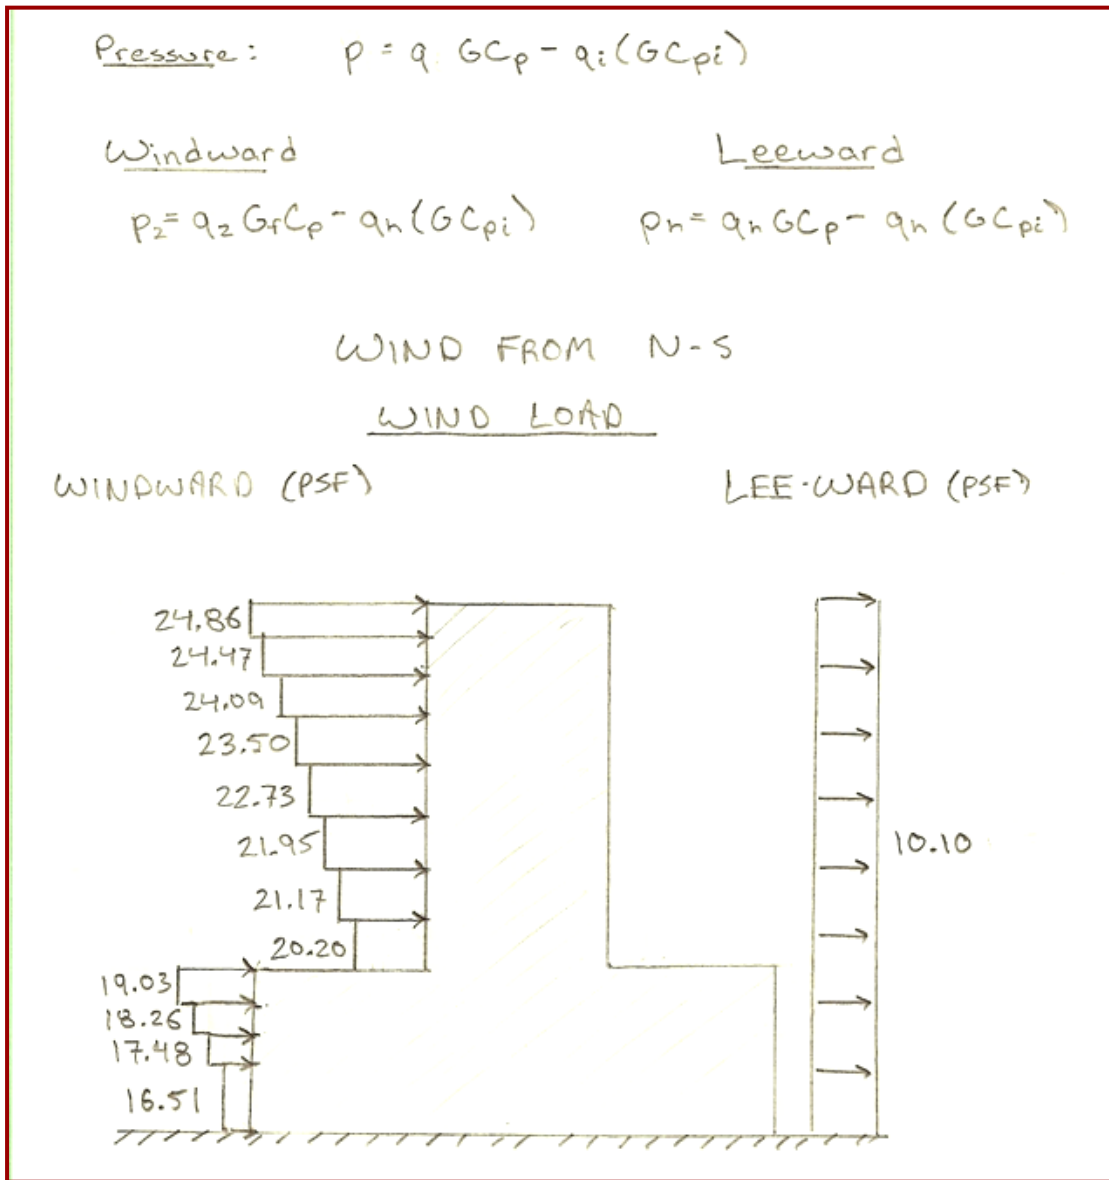 Pressure: p = q GCp - qi(GCpi)
Windward Leeward
pz = qz GfCp - qh(GCpi) ph = qh GCp - qh (GCpi)
WIND FROM N-S
WIND LOAD
WINDWARD (PSF) LEE-WARD (PSF)
24.86
24.47
24.09
23.50
22.73
21.95
10.10
21.17
20.20
19.03
18.26
17.48
16.51